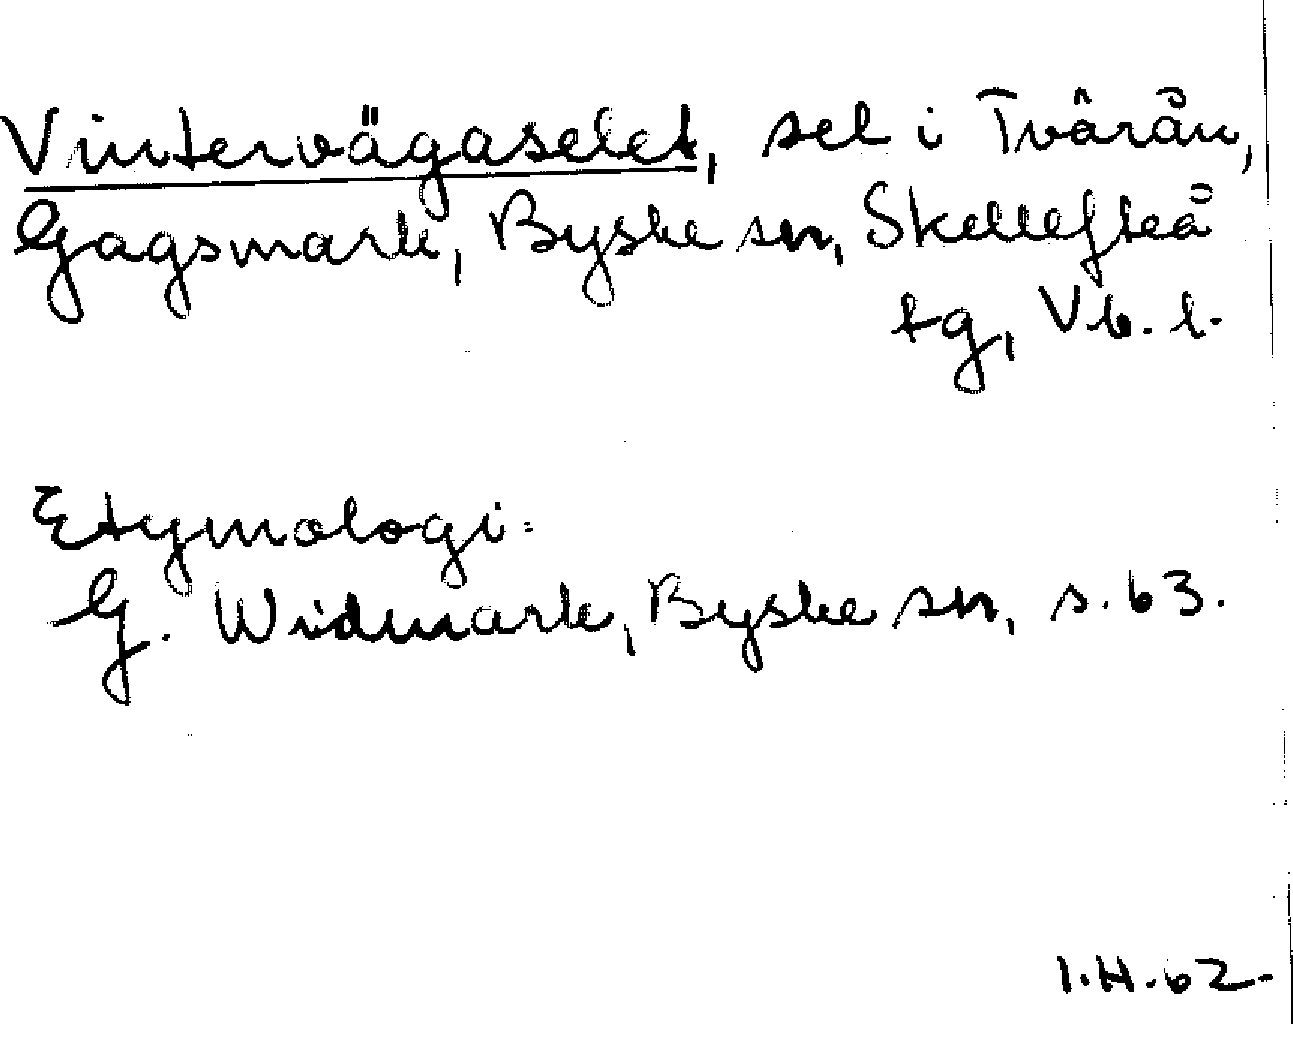 Vintervägaselet, sel i Tvärån,
Gagsmark, Byske sn, Skellefteå
tg, Vb. l.
Etymologi:
G. Widmark, Byske sn, s. 63.
I.H. 62.